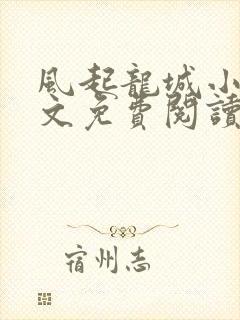 風起龍城小
文免費閱讀
宿州志